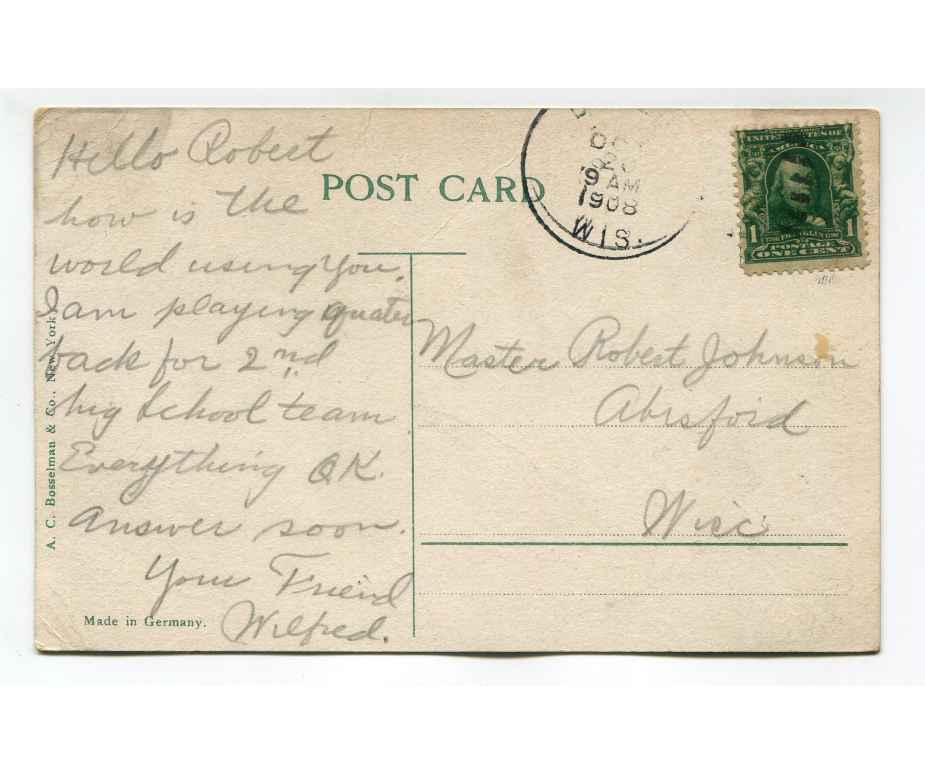 Hello Robert
how is the
world using you.
I am playing quater
back for 2nd
hig School team.
Everything O.K.
Answer soon.
Your Friend
Wilfred.
POST CARD
A. C. Bosselman & Co., New York
Made in Germany.
20
9 AM
1908
WIS.
UNITED STATES OF
AMERICA
1 1
FRANKLIN
POSTAGE
ONE CENT
Master Robert Johnson
Abrsford
Wisc